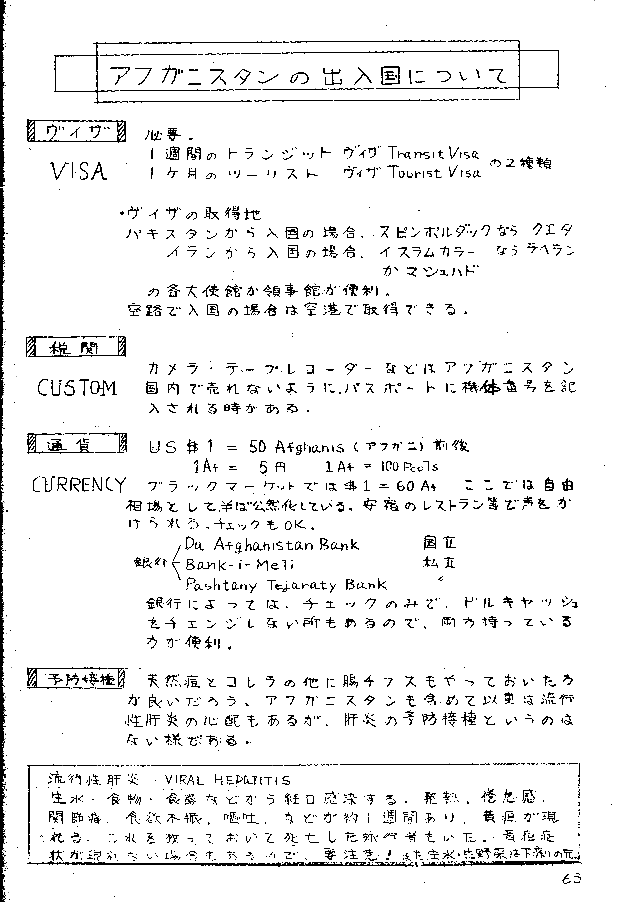 アフガニスタンの出入国について
ヴィザ 必要.
VISA
1週間のトランジット ヴィザ Transit Visa
1ケ月のツーリスト ヴィザ Tourist Visa の2種類
・ヴィザの取得地
パキスタンから入国の場合、スピンボルダックなら クエタ
イランから入国の場合、イスラムカラーならテヘラン
かマシュハド
の各大使館か領事館が便利.
空路で入国の場合は空港で取得できる.
税関 カメラ・テープレコーダーなどはアフガニスタン
CUSTOM 国内で売れないように、パスポートに機体番号を記
入される時がある.
通貨 US $1 = 50 Afghanis (アフガニ) 前後
1Af = 5円 1Af = 100 Pools
CURRENCY ブラックマーケットでは$1=60Af ここでは自由
相場として半ば公然化している。安宿のレストラン等で声をか
けられる。チェックもOK.
銀行 Da Afghanistan Bank 国立
Bank-i-Meli 私立
Pashtany Tejaraty Bank 〃
銀行によっては、チェックのみで、ドルキャッシュ
をチェンジしない所もあるので、両方持っている
方が便利.
予防接種 天然痘とコレラの他に腸チフスもやっておいたろ
が良いだろう、アフガニスタンも含めて以東は流行
性肝炎の心配もあるが、肝炎の予防接種というのは
ない様である.
流行性肝炎・VIRAL HEPATITIS
生水・食物・食器などから経口感染する。発熱、倦怠感、
関節痛、食欲不振、嘔吐、などが約1週間あり、黄疸が現
れる。これを放っておいて死亡した旅行者もいた。黄疸症
状が現れない場合もあるので、要注意!また生水・生野菜は下痢の元
63